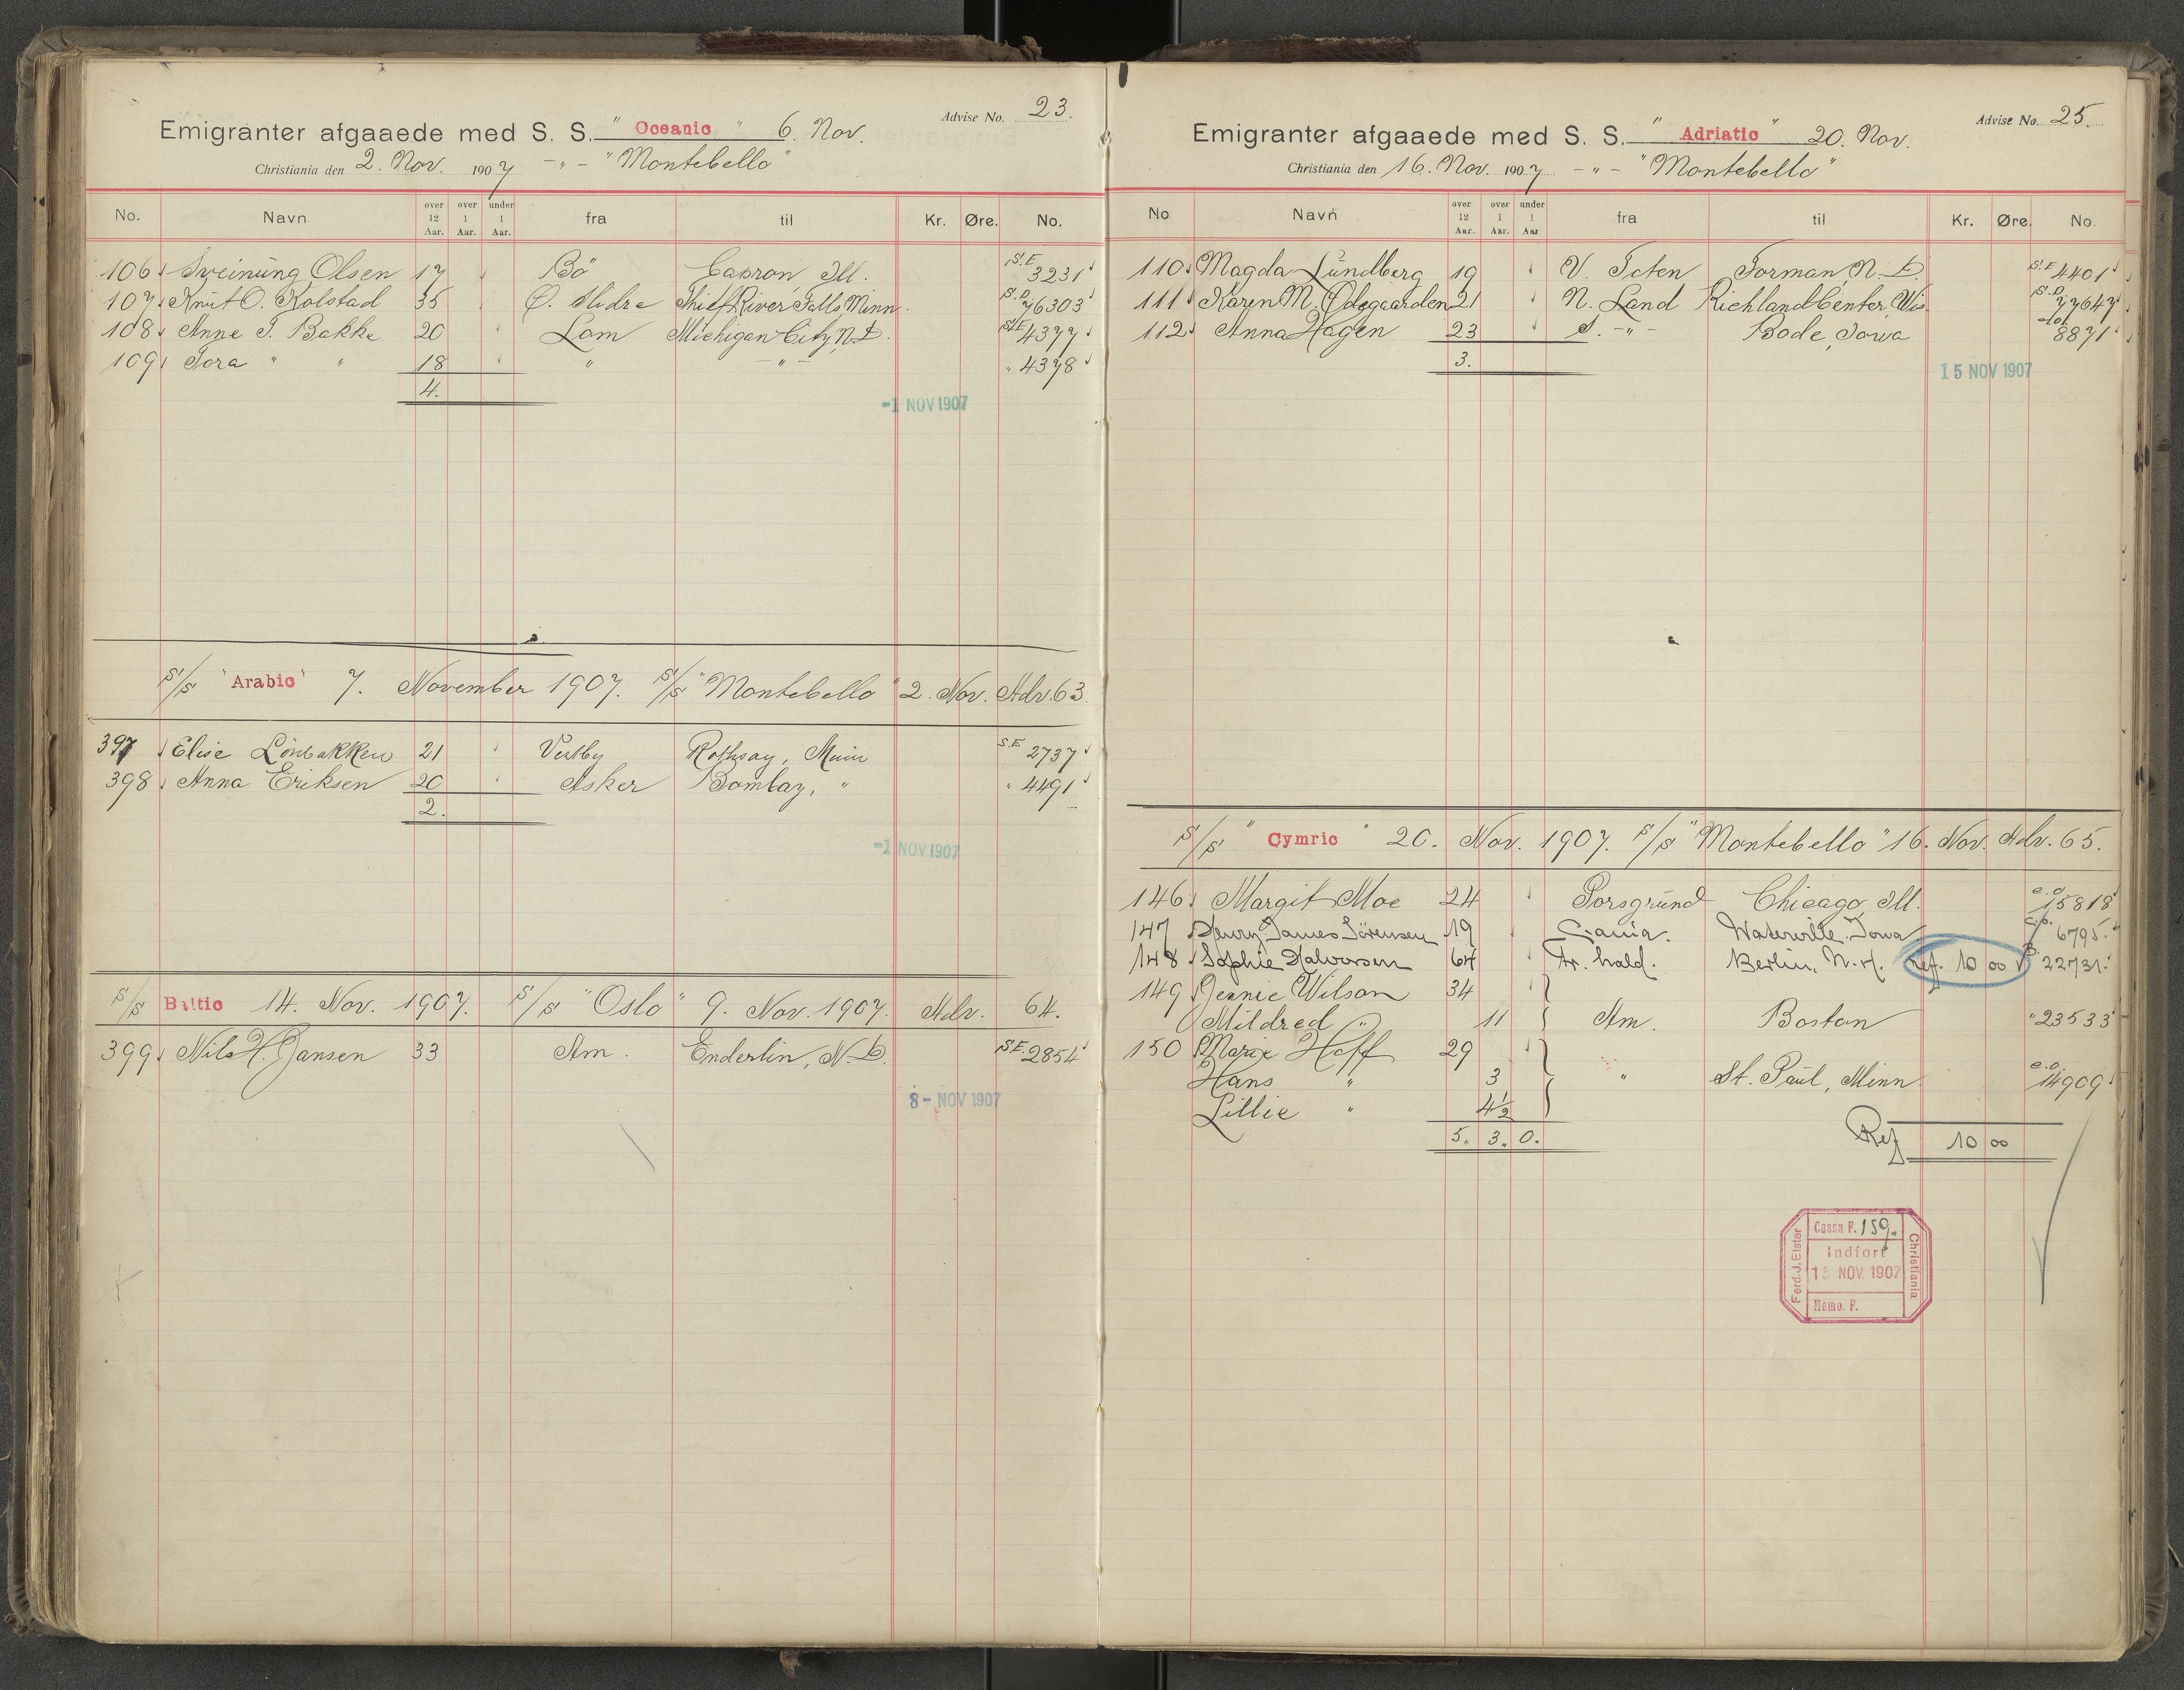 Advise No. 23.
Emigranter afgaaede med S. S. " Oceanic " 6. Nov.
Christiania den 2. Nov. 1907 -"- "Montebello"
No. Navn. over 12 Aar. over 1 Aar. under 1 Aar. fra til Kr. Øre. No.
106 Sveinung Olsen 17 Bö Capron Ill. S.E 3231
107 Knut O. Kolstad 35 Ö. Slidre Thief River Falls, Minn. S.O 76303
108 Anne T. Bakke 20 Lom Michigan City, N.D. S.E 4377
109 Tora " " 18 " -"- " 4378
4.
-1 NOV 1907
S/S "Arabic" 7. November 1907. S/S "Montebello" 2. Nov. Adv. 63.
397 Elise Lönbakken 21 Vestby Rothsay, Minn S.E 2737
398 Anna Eriksen 20 Asker Bombay, " " 4491
2.
-1 NOV 1907
S/S Baltic 14. Nov. 1907. S/S "Oslo" 9. Nov. 1907. Adv. 64.
399 Nils H. Jansen 33 Am. Enderlin, N.D. S.E. 2854
8- NOV 1907
Advise No. 25.
Emigranter afgaaede med S. S. " Adriatic " 20. Nov.
Christiania den 16. Nov. 1907 -"- "Montebello"
No Navn over 12 Aar. over 1 Aar. under 1 Aar fra til Kr. Øre. No.
110 Magda Lundberg 19 V. Toten Forman N.D. S.E 4401
111 Karen M. Ødegaarden 21 N. Land Richland Center, Wis. S.O. 77647
112 Anna Hagen 23 S. -"- Bode, Iowa 8871
3.
15 NOV 1907
S/S " Cymric " 20. Nov. 1907. S/S "Montebello" 16. Nov. Adv. 65.
146 Margit Moe 24 Porsgrund Chicago Ill. c.o 15818
147 Henry James Sörensen 19 Xania. Waterville. Iowa c.o. 6795.
148 Sophie Halvorsen 64 Fr. hald. Berlin, N.H. ref. 10 00 B. 22731.
149 Jennie Wilson 34
Mildred " 11 Am. Boston " 23533
150 Marie Hoff 29
Hans " 3 " St. Paul, Minn c.o. 14909
Lillie " 4½
5. 3. 0. Ref 10 00
Cassa F. 159.
Indført
15 NOV. 1907
Memo. F.
Ferd. J. Elster
Christiania